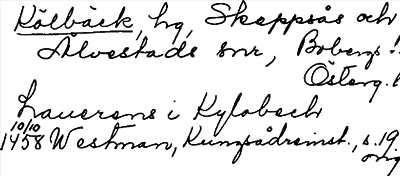 Kölbäck, hg, Skeppsås och
Älvestads snr, Bobergs
Österg. l
Laurens i Kylobech
10/10
1458 Westman, Kungsådreinst., s. 19
orig